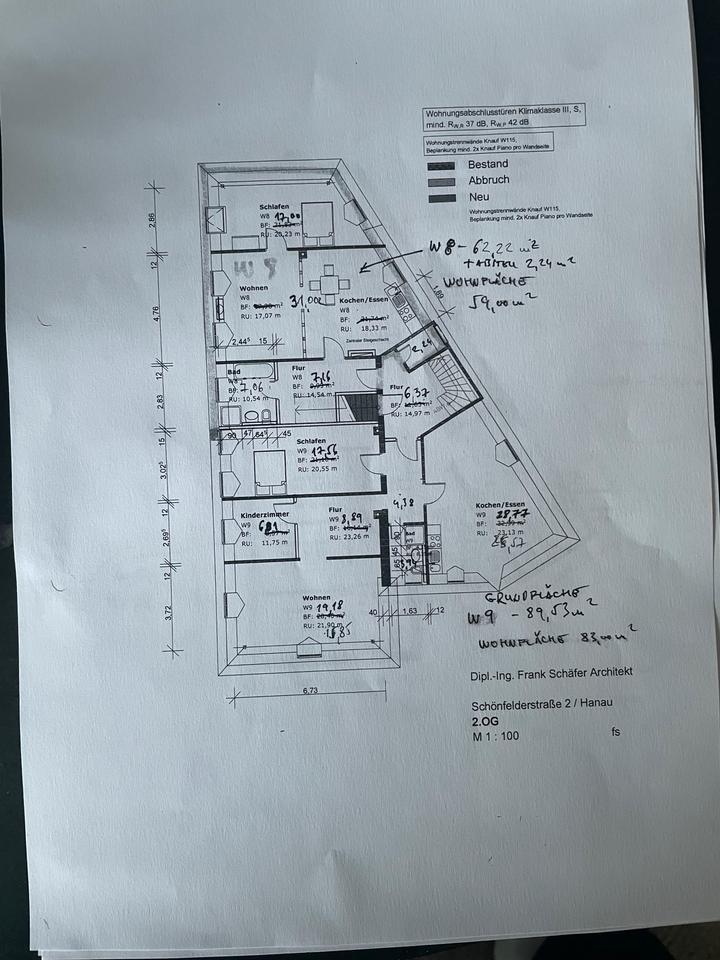 Wohnungsabschlusstüren Klimaklasse III, S,
mind. RW,R 37 dB, RW,P 42 dB
Wohnungstrennwände Knauf W115,
Beplankung mind. 2x Knauf Piano pro Wandseite
Bestand
Abbruch
Neu
Wohnungstrennwände Knauf W115,
Beplankung mind. 2x Knauf Piano pro Wandseite
Schlafen
W8 17,00
BF:
RU: 20,23 m
W8 - 62,22 m²
2,24 m²
WOHNFLÄCHE
59,00 m²
W8
Wohnen
W8
BF:
RU: 17,07 m
31,00
Kochen/Essen
W8
BF:
RU: 18,33 m
2,44⁵ 15
2,24
Bad
W8
BF: 7,06
RU: 10,54 m
Flur
W8 7,16
BF:
RU: 14,54 m
Flur
6,37
BF:
RU: 14,97 m
90 47 64⁵ 45
Schlafen
W9 17,56
BF:
RU: 20,55 m
4,38
Kinderzimmer
W9
BF:
RU: 11,75 m
Flur
W9 8,89
BF:
RU: 23,26 m
Bad
Kochen/Essen
W9 28,77
BF:
RU: 23,13 m
Wohnen
W9 19,18
BF:
RU: 21,90 m
40 1,63 12
6,73
2,86
12
4,76
12
2,83
15
3,02⁵
12
2,69⁵
12
3,72
GRUNDFLÄCHE
W9 - 89,53 m²
WOHNFLÄCHE 83,00 m²
Dipl.-Ing. Frank Schäfer Architekt
Schönfelderstraße 2 / Hanau
2.OG
M 1 : 100 fs